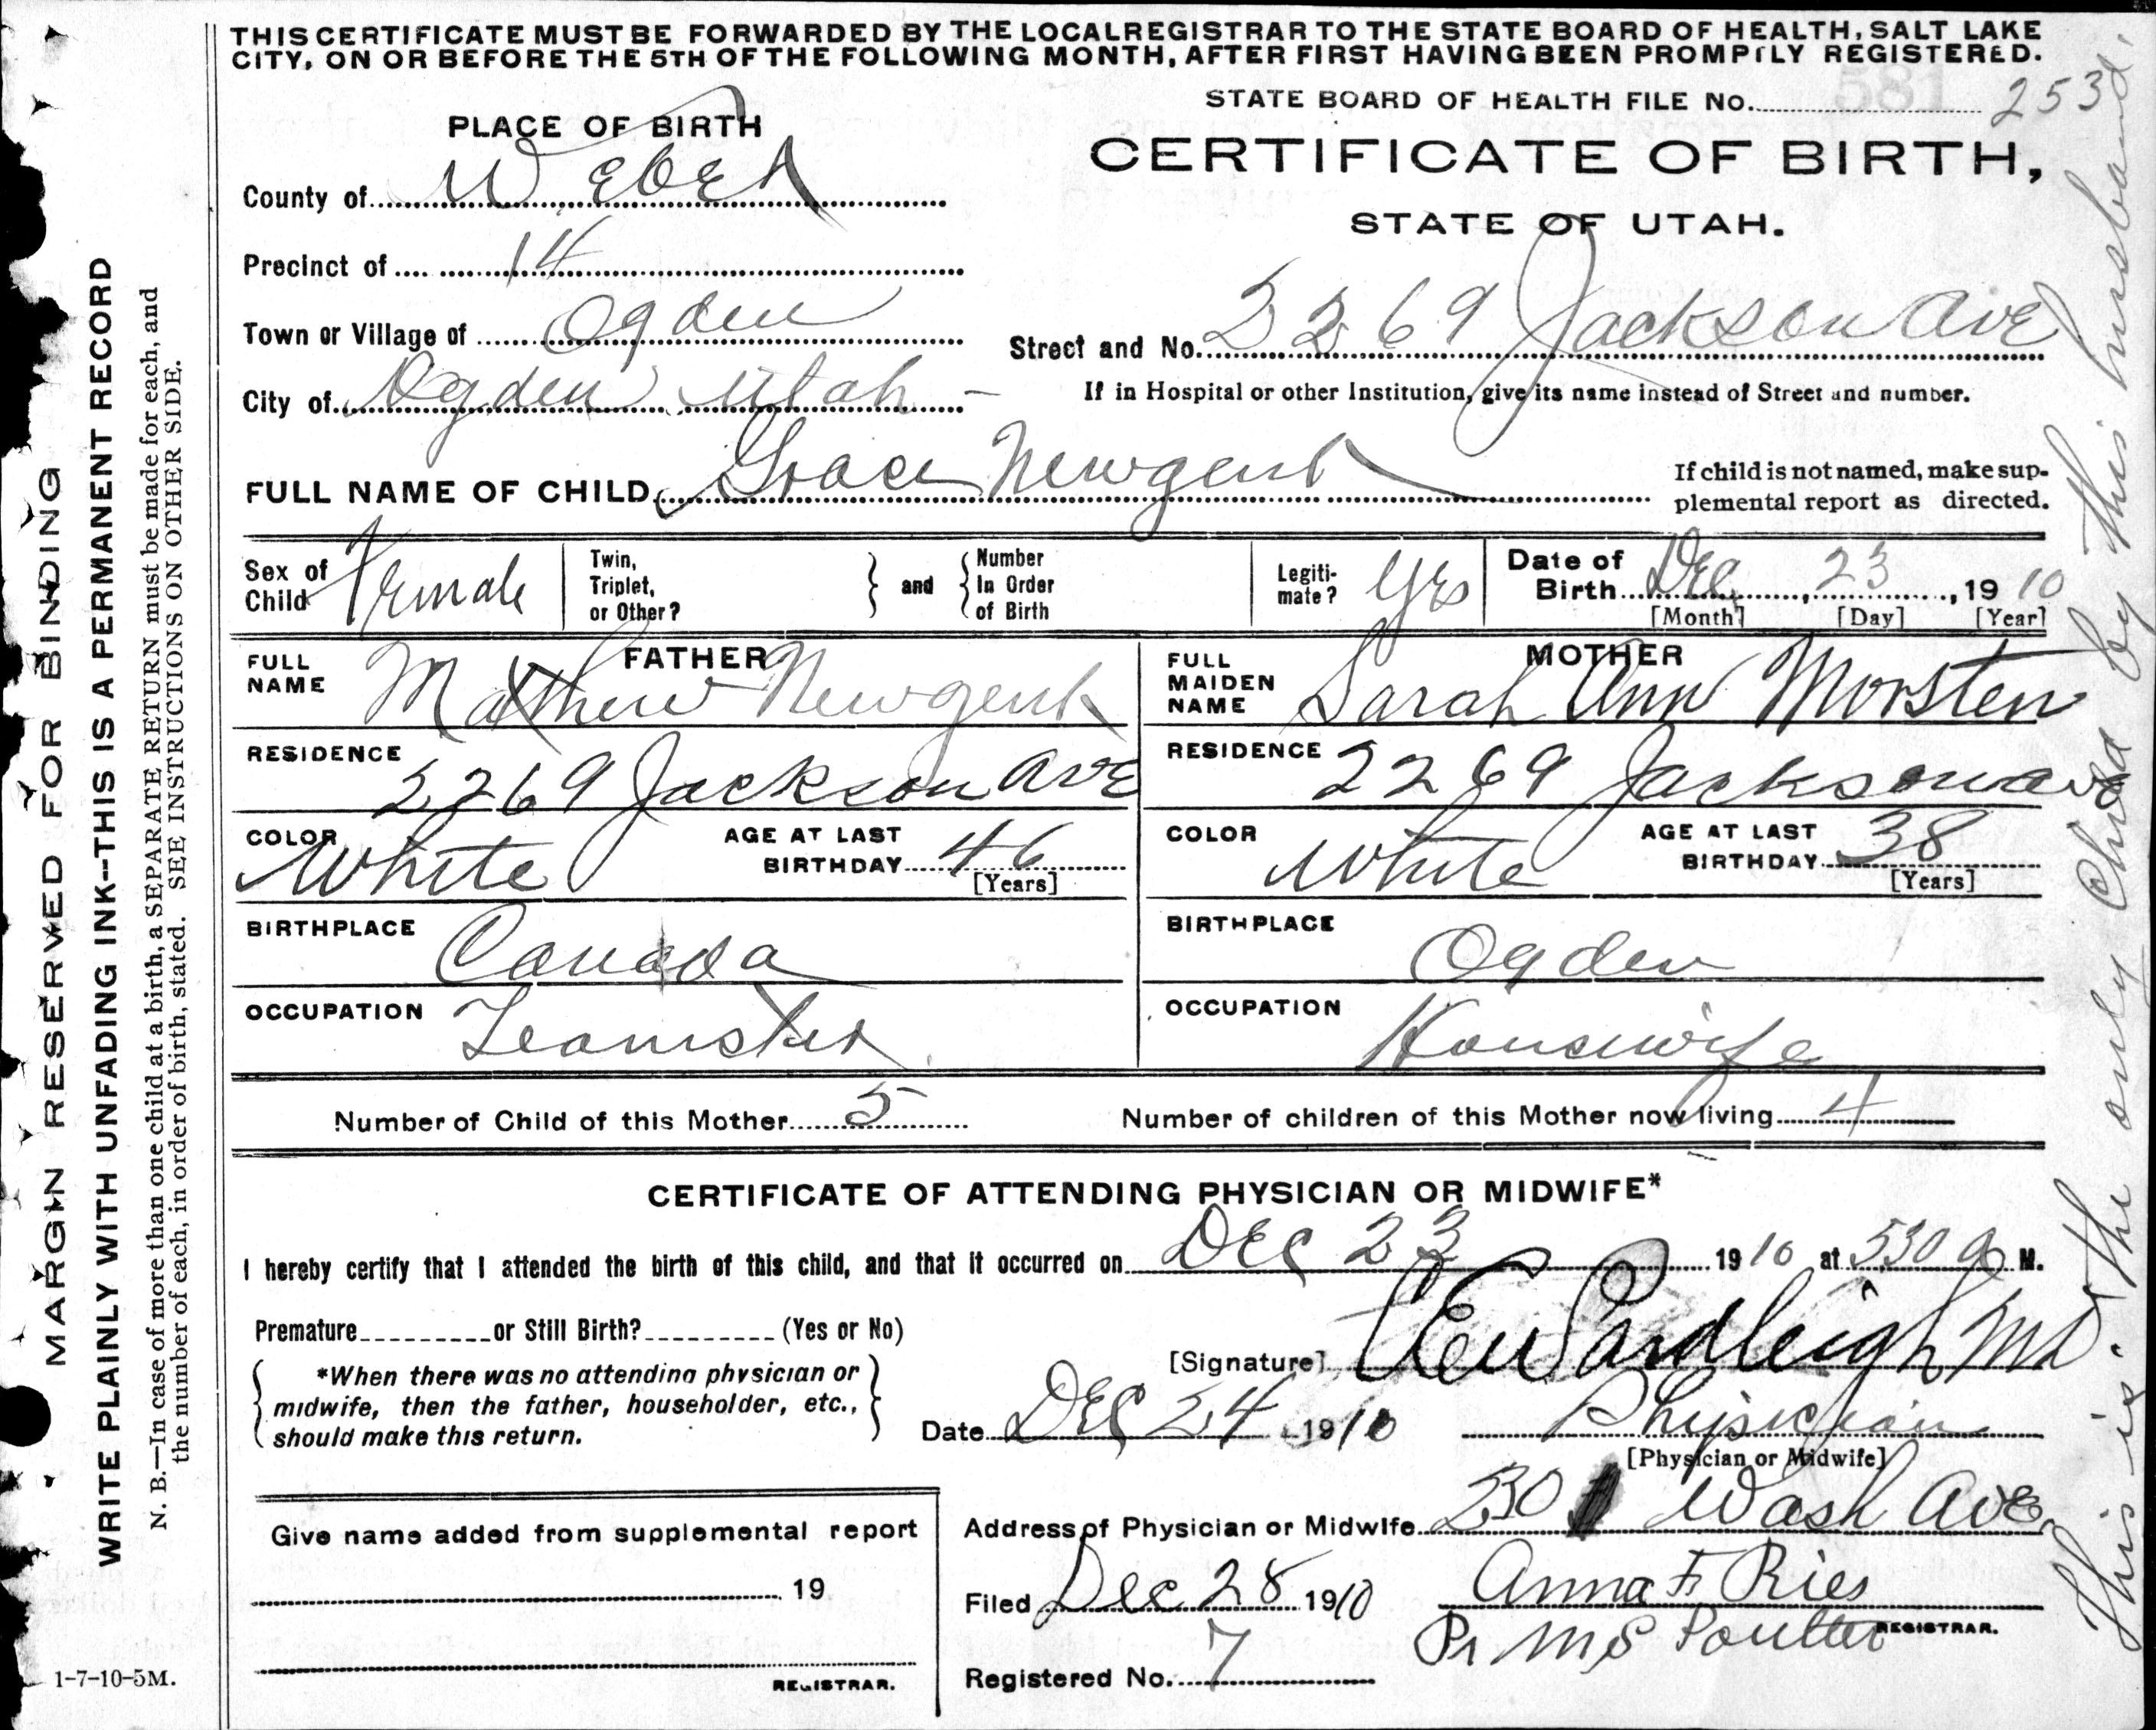 THIS CERTIFICATE MUST BE FORWARDED BY THE LOCAL REGISTRAR TO THE STATE BOARD OF HEALTH, SALT LAKE
CITY, ON OR BEFORE THE 5TH OF THE FOLLOWING MONTH, AFTER FIRST HAVING BEEN PROMPTLY REGISTERED.
STATE BOARD OF HEALTH FILE No. 581 253
PLACE OF BIRTH
CERTIFICATE OF BIRTH,
STATE OF UTAH.
County of Weber
Precinct of 14
Town or Village of Ogden
Street and No. 2269 Jackson Ave
City of Ogden Utah -
If in Hospital or other Institution, give its name instead of Street and number.
FULL NAME OF CHILD Grace Newgent
If child is not named, make sup-
plemental report as directed.
Sex of Child Female
Twin, Triplet, or Other?
and
Number In Order of Birth
Legiti-mate? Yes
Date of Birth Dec, 23, 1910
[Month] [Day] [Year]
FATHER
FULL NAME Mathew Newgent
RESIDENCE 2269 Jackson Ave
COLOR White
AGE AT LAST BIRTHDAY 46
[Years]
BIRTHPLACE Canada
OCCUPATION Teamster
MOTHER
FULL MAIDEN NAME Sarah Ann Morsten
RESIDENCE 2269 Jackson ave
COLOR White
AGE AT LAST BIRTHDAY 38
[Years]
BIRTHPLACE Ogden
OCCUPATION Housewife
Number of Child of this Mother 5
Number of children of this Mother now living 4
CERTIFICATE OF ATTENDING PHYSICIAN OR MIDWIFE*
I hereby certify that I attended the birth of this child, and that it occurred on Dec 23 1910 at 530 a M.
Premature or Still Birth? (Yes or No)
*When there was no attending physician or
midwife, then the father, householder, etc.,
should make this return.
[Signature] MD.
Date Dec 24 1910
Physician
[Physician or Midwife]
Address of Physician or Midwife 230 Wash Ave
Give name added from supplemental report
19
REGISTRAR.
Filed Dec 28 1910
Anna F Ries
REGISTRAR.
Pr M S Poulter
Registered No. 7
1-7-10-5M.
MARGIN RESERVED FOR BINDING
WRITE PLAINLY WITH UNFADING INK--THIS IS A PERMANENT RECORD
N. B.—In case of more than one child at a birth, a SEPARATE RETURN must be made for each, and
the number of each, in order of birth, stated. SEE INSTRUCTIONS ON OTHER SIDE.
This is the only child by this husband.